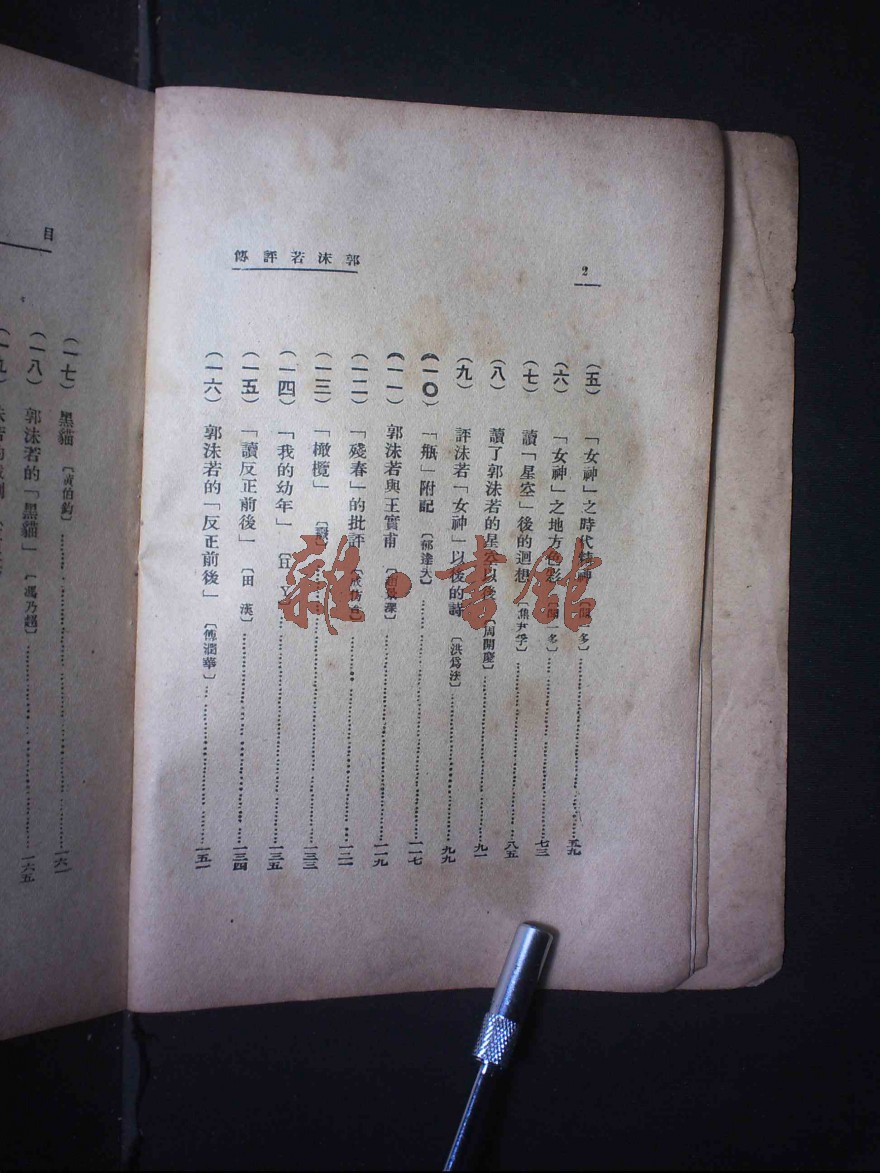 2
郭沫若評傳
(五)「女神」之時代精神〔聞一多〕……五九
(六)「女神」之地方色彩〔聞一多〕……七三
(七)讀「星空」後的迴想〔焦尹孚〕……八五
(八)讀了郭沫若的星空以後〔周開慶〕……九一
(九)評沫若「女神」以後的詩〔洪爲法〕……九九
(一〇)「瓶」附記〔郁達夫〕……一一七
(一一)郭沫若與王實甫……一一九
(一二)「殘春」的批評〔成仿吾〕……一二一
(一三)「橄欖」……一三三
(一四)「我的幼年」……一三五
(一五)「讀反正前後」〔田漢〕……一三四
(一六)郭沫若的「反正前後」〔傅潤華〕……一五一
目
(一七)黑貓〔黃伯鈞〕……一六一
(一八)郭沫若的「黑貓」〔馮乃超〕……一六五
雜·書館